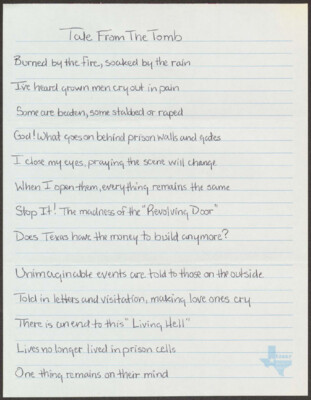 Tale From The Tomb
Burned by the fire, soaked by the rain
I've heard grown men cry out in pain
Some are beaten, some stabbed or raped
God! What goes on behind prison walls and gates
I close my eyes, praying the scene will change
When I open them, everything remains the same
Stop It! The madness of the "Revolving Door"
Does Texas have the money to build anymore?
Unimaginable events are told to those on the outside
Told in letters and visitation, making love ones cry
There is an end to this "Living Hell"
Lives no longer lived in prison cells
One thing remains on their mind